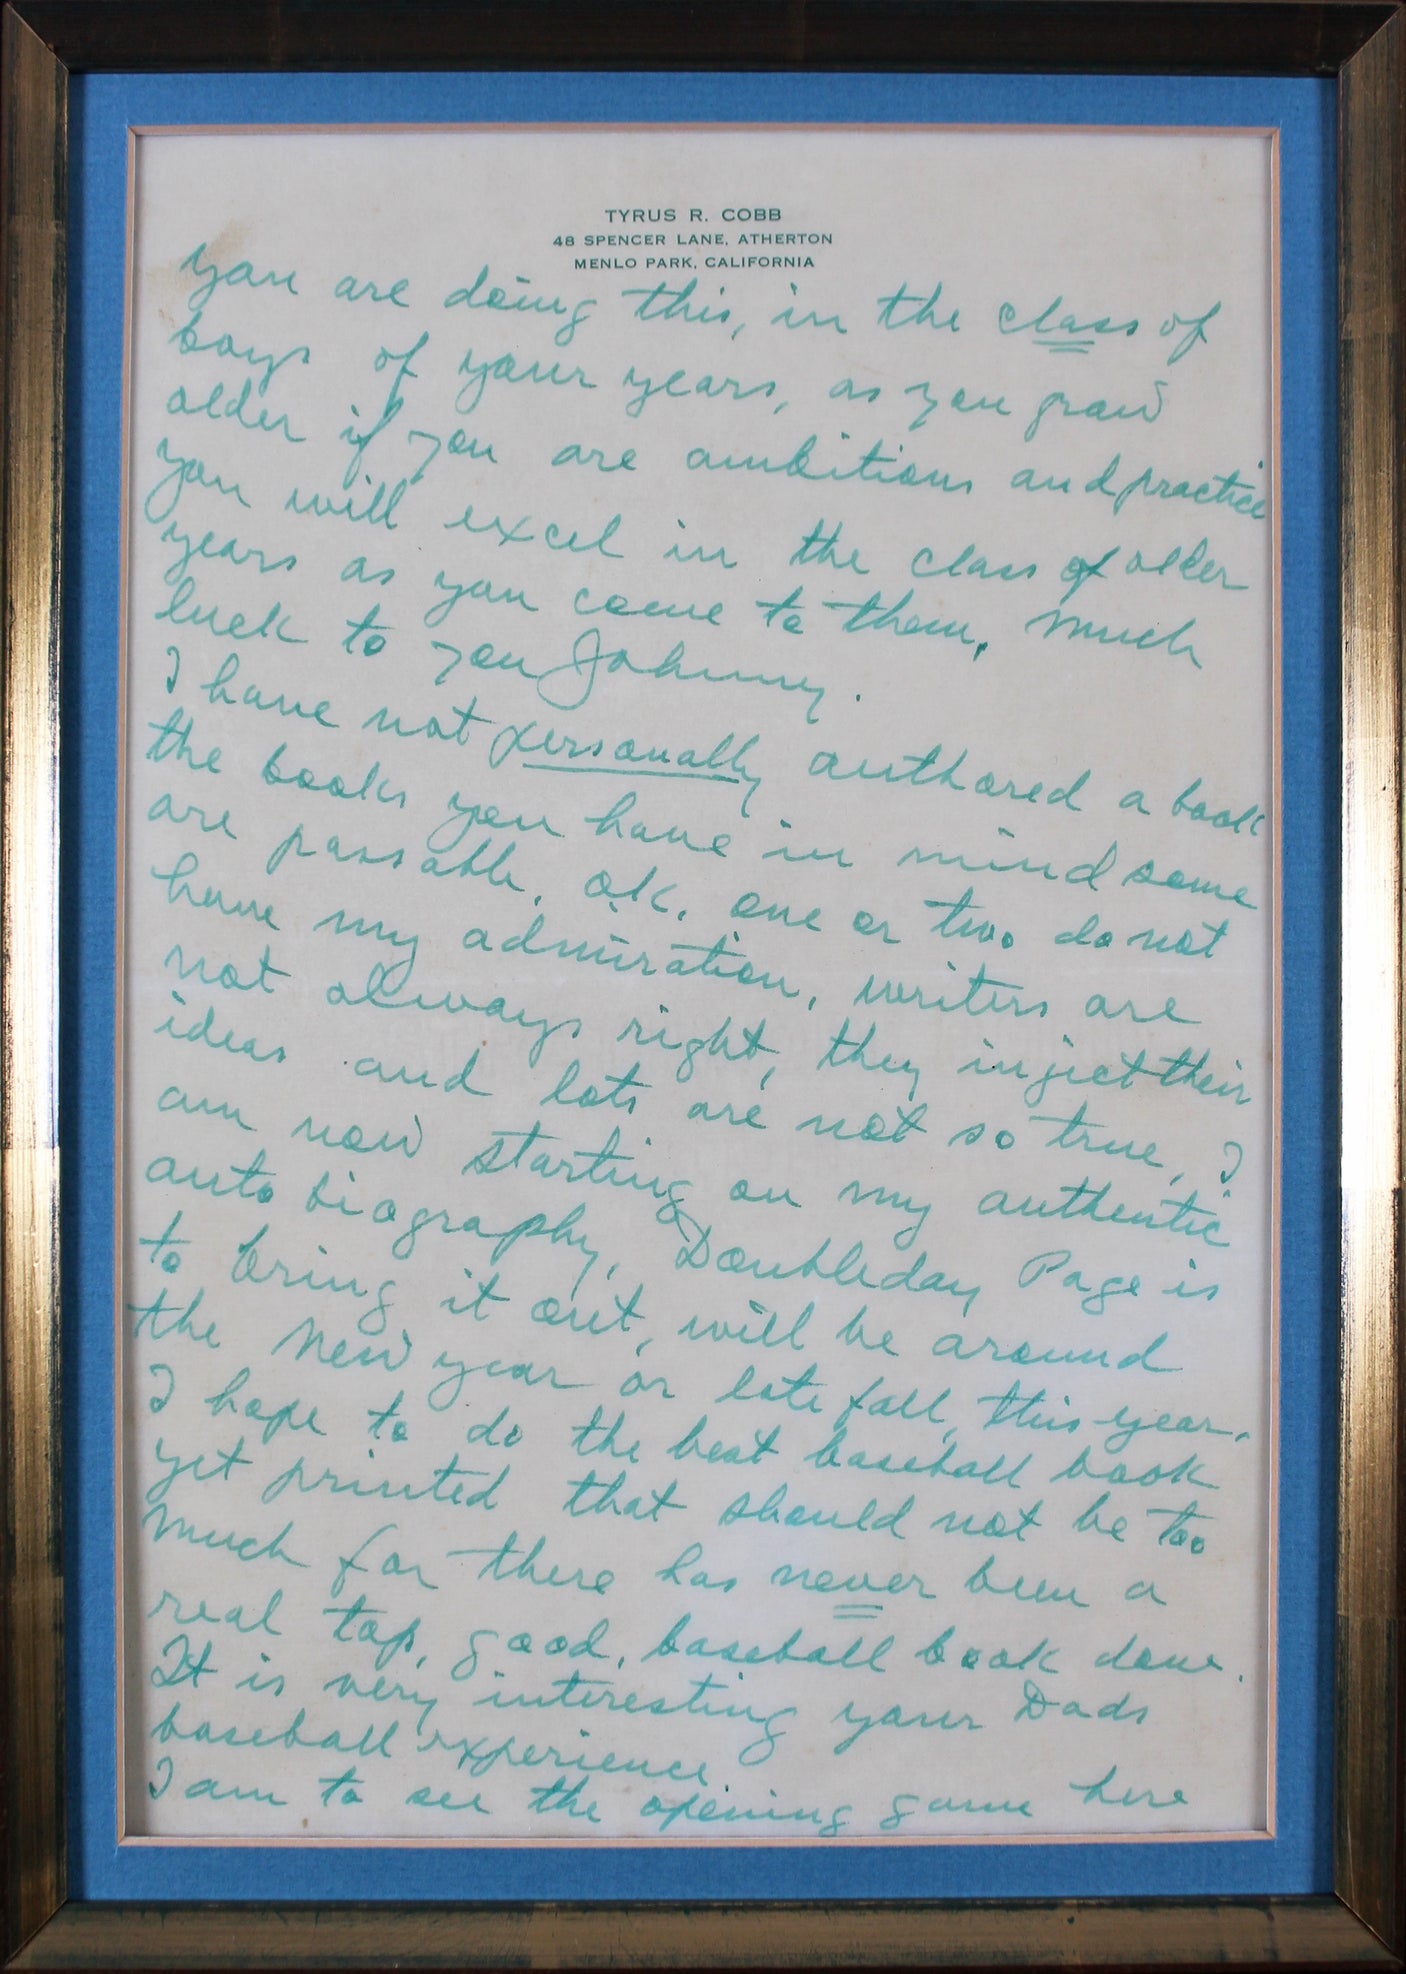 TYRUS R. COBB
48 SPENCER LANE, ATHERTON
MENLO PARK, CALIFORNIA
you are doing this, in the class of
boys of your years, as you grow
older if you are ambitious and practice
you will excel in the class of older
years as you come to them, much
luck to you Johnny.
I have not personally authored a book
the books you have in mind some
are passable, o.k. one or two do not
have my admiration, writers are
not always right, they inject their
ideas and lots are not so true, I
am now starting on my authentic
auto biography, Doubleday Page is
to bring it out, will be around
the New year or late fall, this year.
I hope to do the best baseball book
yet printed that should not be too
much for there has never been a
real top, good, baseball book done.
It is very interesting your Dads
baseball experience.
I am to see the opening game here